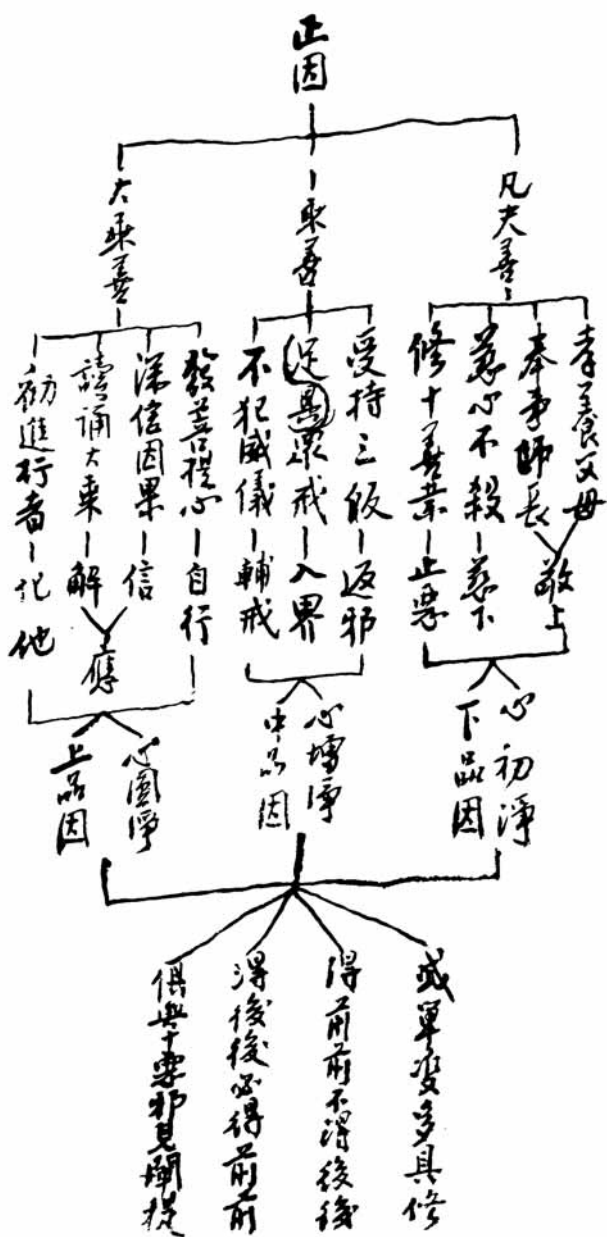 正因
凡夫善
孝養父母
奉事師長
敬上
慈心不殺
慈下
修十善業
止惡
心初淨
下品因
乘善
受持三皈
返邪
足具眾戒
入界
不犯威儀
輔戒
心增淨
中品因
大乘善
發菩提心
自行
深信因果
信
讀誦大乘
解
應
勸進行者
化他
心圓淨
上品因
或單雙多具修
得前前不得後後
得後後必得前前
俱無十惡邪見闡提